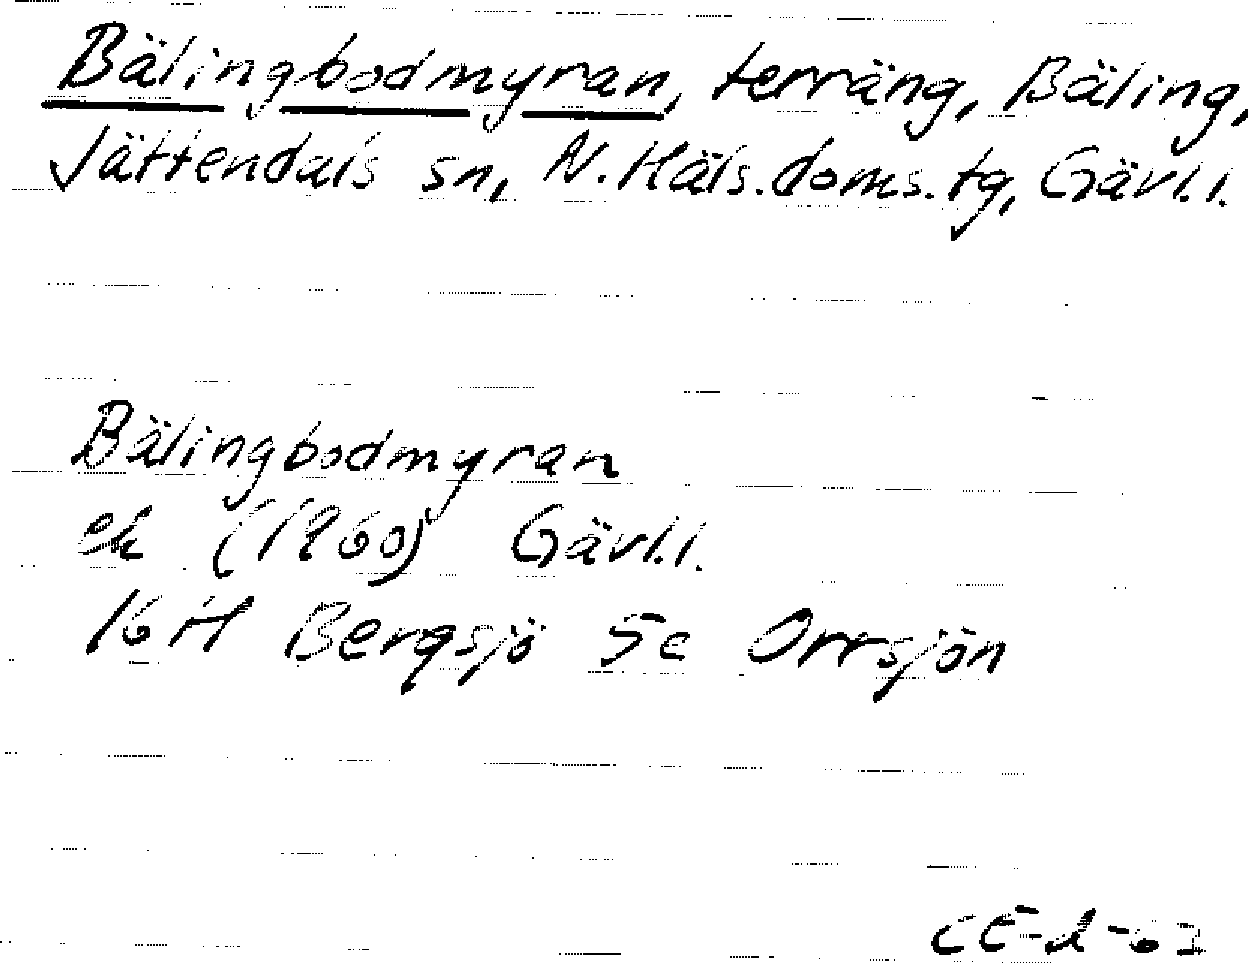 Bälingbodmyran, terräng, Bäling,
Jättendals sn, N. Häls. doms. tg, Gävl.l.
Bälingbodmyran
ek (1960) Gävl.l.
16 H Bergsjö 5c Orrsjön